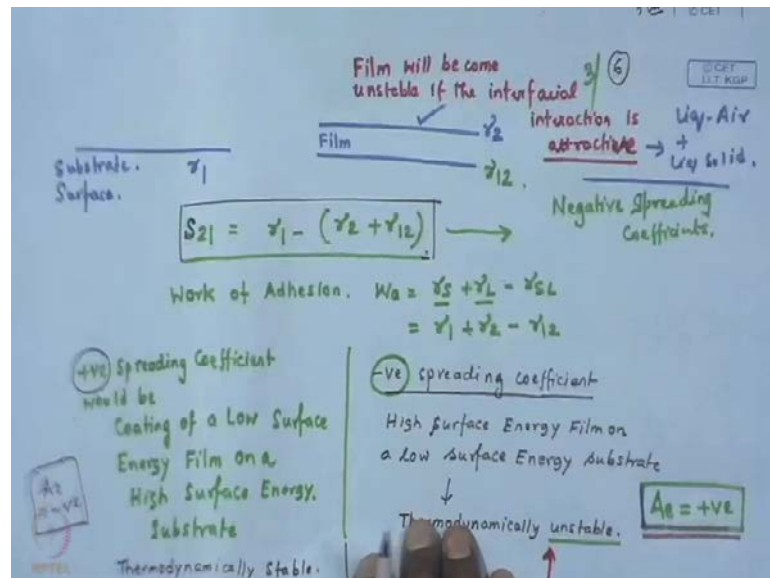 CET
Film will be come
unstable if the interfacial
interaction is
attractive → Liq-Air
+
Liq Solid.
3/ 6
© CET
I.I.T. KGP
Substrate. γ1
Surface.
Film γ2
γ12.
S21 = γ1 - (γ2 + γ12). →
Negative Spreading
Coefficients.
Work of Adhesion. Wa = γS + γL - γSL
= γ1 + γ2 - γ12
+ve Spreading Coefficient
would be
Coating of a Low Surface
Energy Film on a
High Surface Energy.
Substrate
Thermodynamically Stable.
-ve spreading coefficient
High Surface Energy Film on
a low surface Energy substrate
↓
Thermodynamically unstable.
Ae = +ve
-ve
NPTEL